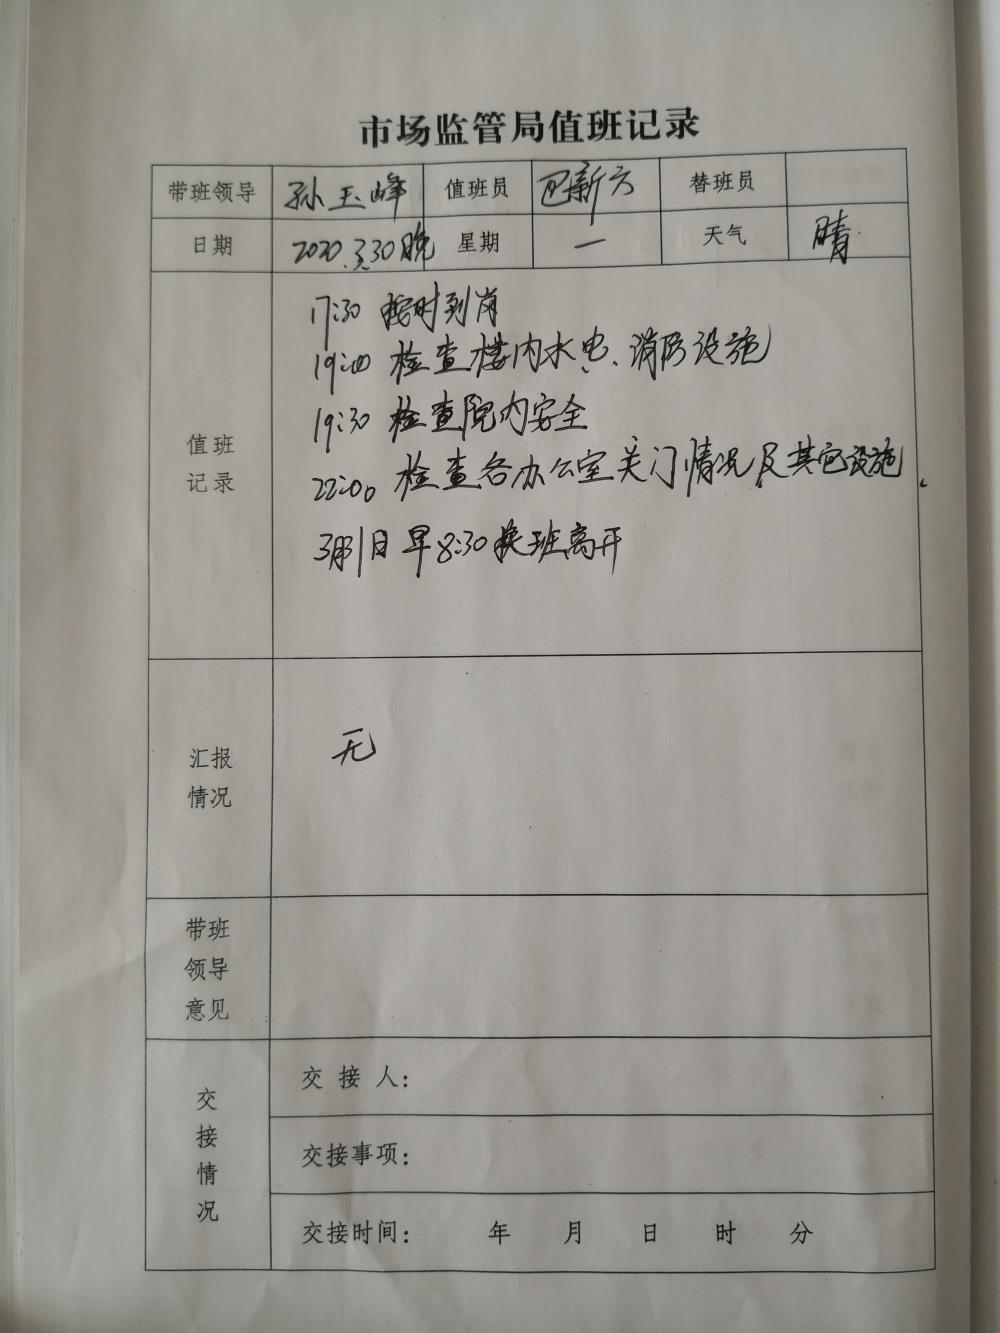 市场监管局值班记录
带班领导 孙玉峰 值班员 包新方 替班员
日期 2020.3.30晚 星期 一 天气 晴
17:30 按时到岗
19:00 检查楼内水电、消防设施
19:30 检查院内安全
值班
记录
22:00 检查各办公室关门情况及其它设施.
3月31日早8:30换班离开
无
汇报
情况
带班
领导
意见
交接情况
交接人:
交接事项:
交接时间: 年 月 日 时 分